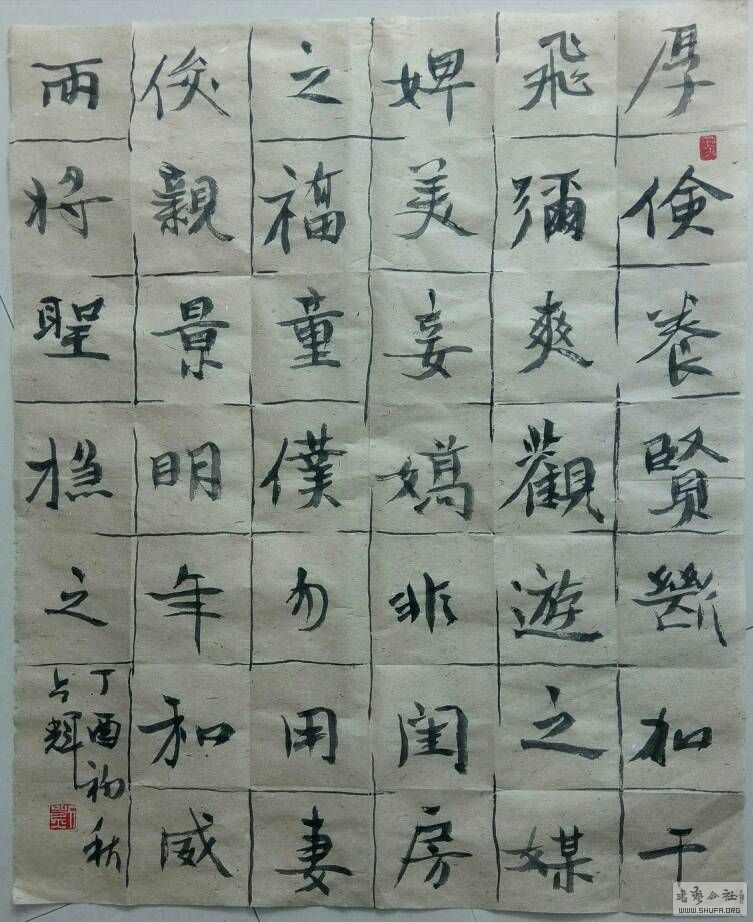 厚儉養賢加干
飛彌爽觀遊之媒
婢美妾嬌非閨房
之福童僕勿用妻
俊親景明年和威
将聖之
丁酉初秋
占輝
書藝公社
WWW.SHUFA.ORG